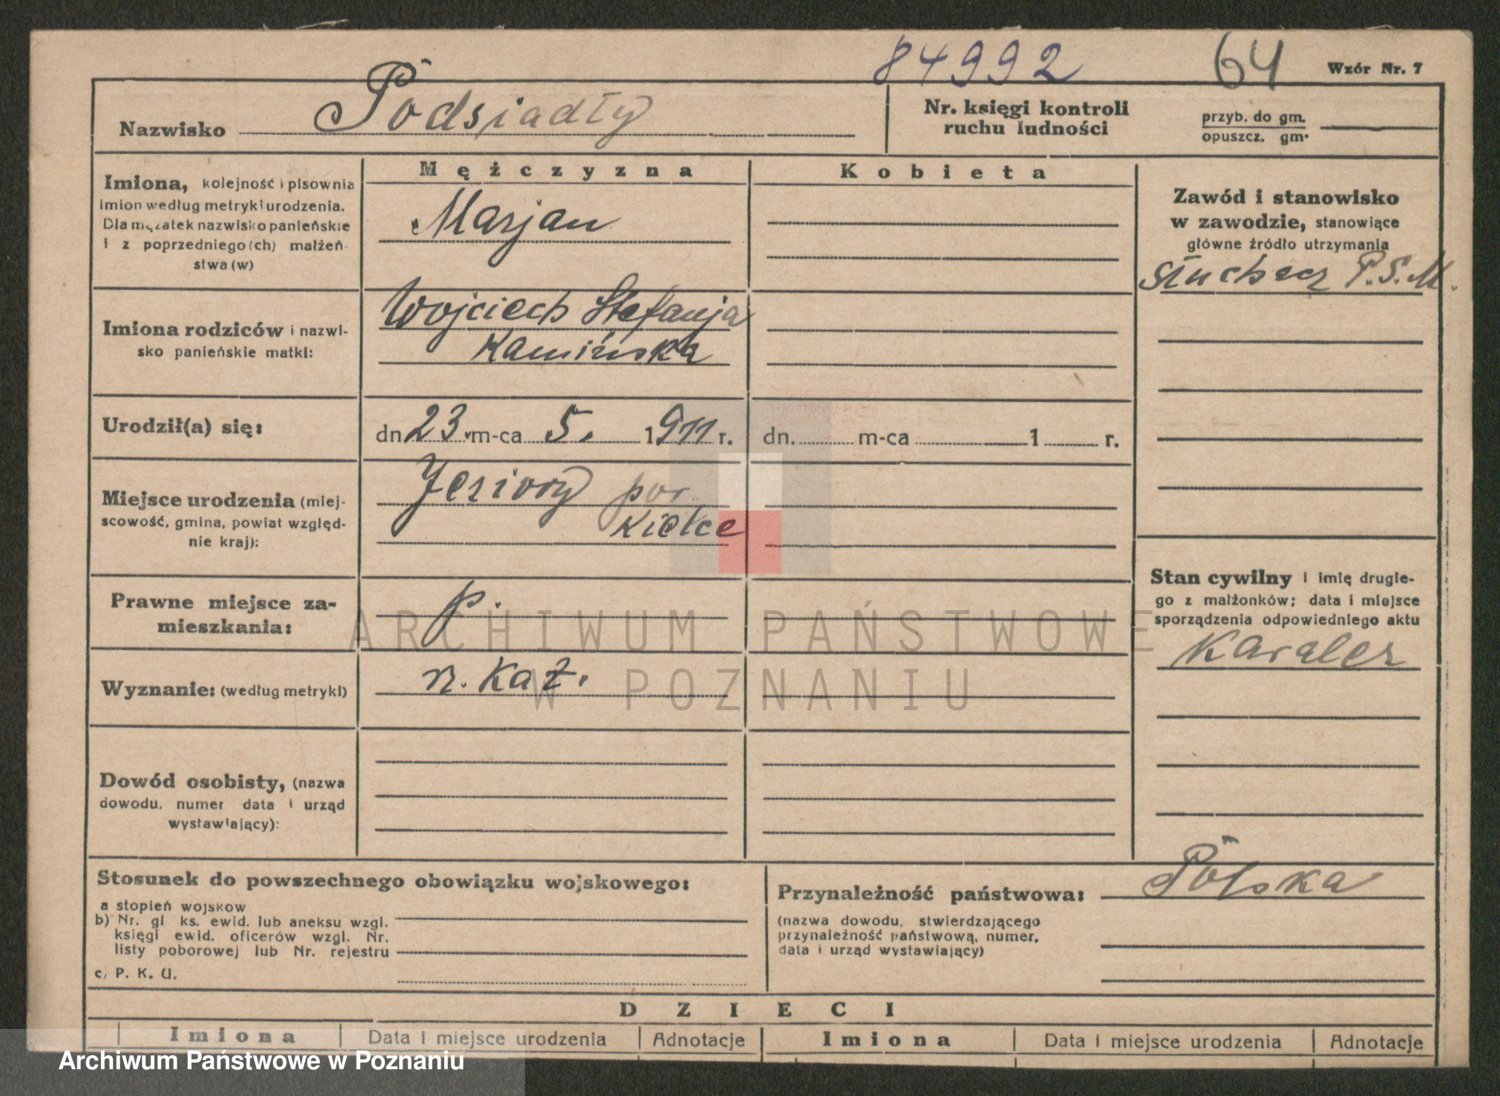 84992 64 Wzór Nr. 7
Nazwisko Podsiadły
Nr. księgi kontroli
ruchu ludności
przyb. do gm.
opuszcz. gm.
Mężczyzna Kobieta
Imiona, kolejność i pisownia
imion według metryki urodzenia.
Dla mężatek nazwisko panieńskie
i z poprzedniego(ch) małżeń-
stwa(w)
Marjan
Imiona rodziców i nazwi-
sko panieńskie matki:
Wojciech Stefanja
Kamińska
Urodził(a) się:
dn 23. m-ca 5. 1911 r.
dn. m-ca 1 r.
Miejsce urodzenia (miej-
scowość, gmina, powiat względ-
nie kraj):
Jeziory pow.
Kielce
Prawne miejsce za-
mieszkania:
p.
Wyznanie: (według metryki)
rz. kat.
Dowód osobisty, (nazwa
dowodu, numer data i urząd
wystawiający):
Zawód i stanowisko
w zawodzie, stanowiące
główne źródło utrzymania
słuchacz P.S.M.
Stan cywilny i imię drugie-
go z małżonków; data i miejsce
sporządzenia odpowiedniego aktu
kawaler
Stosunek do powszechnego obowiązku wojskowego:
a stopień wojskow
b) Nr. gł ks. ewid. lub aneksu wzgl.
księgi ewid. oficerów wzgl. Nr.
listy poborowej lub Nr. rejestru
c, P. K. U.
Przynależność państwowa: Polska
(nazwa dowodu, stwierdzającego
przynależność państwową, numer,
data i urząd wystawiający)
DZIECI
Imiona Data i miejsce urodzenia Adnotacje Imiona Data i miejsce urodzenia Adnotacje
ARCHIWUM PAŃSTWOWE
W POZNANIU
Archiwum Państwowe w Poznaniu